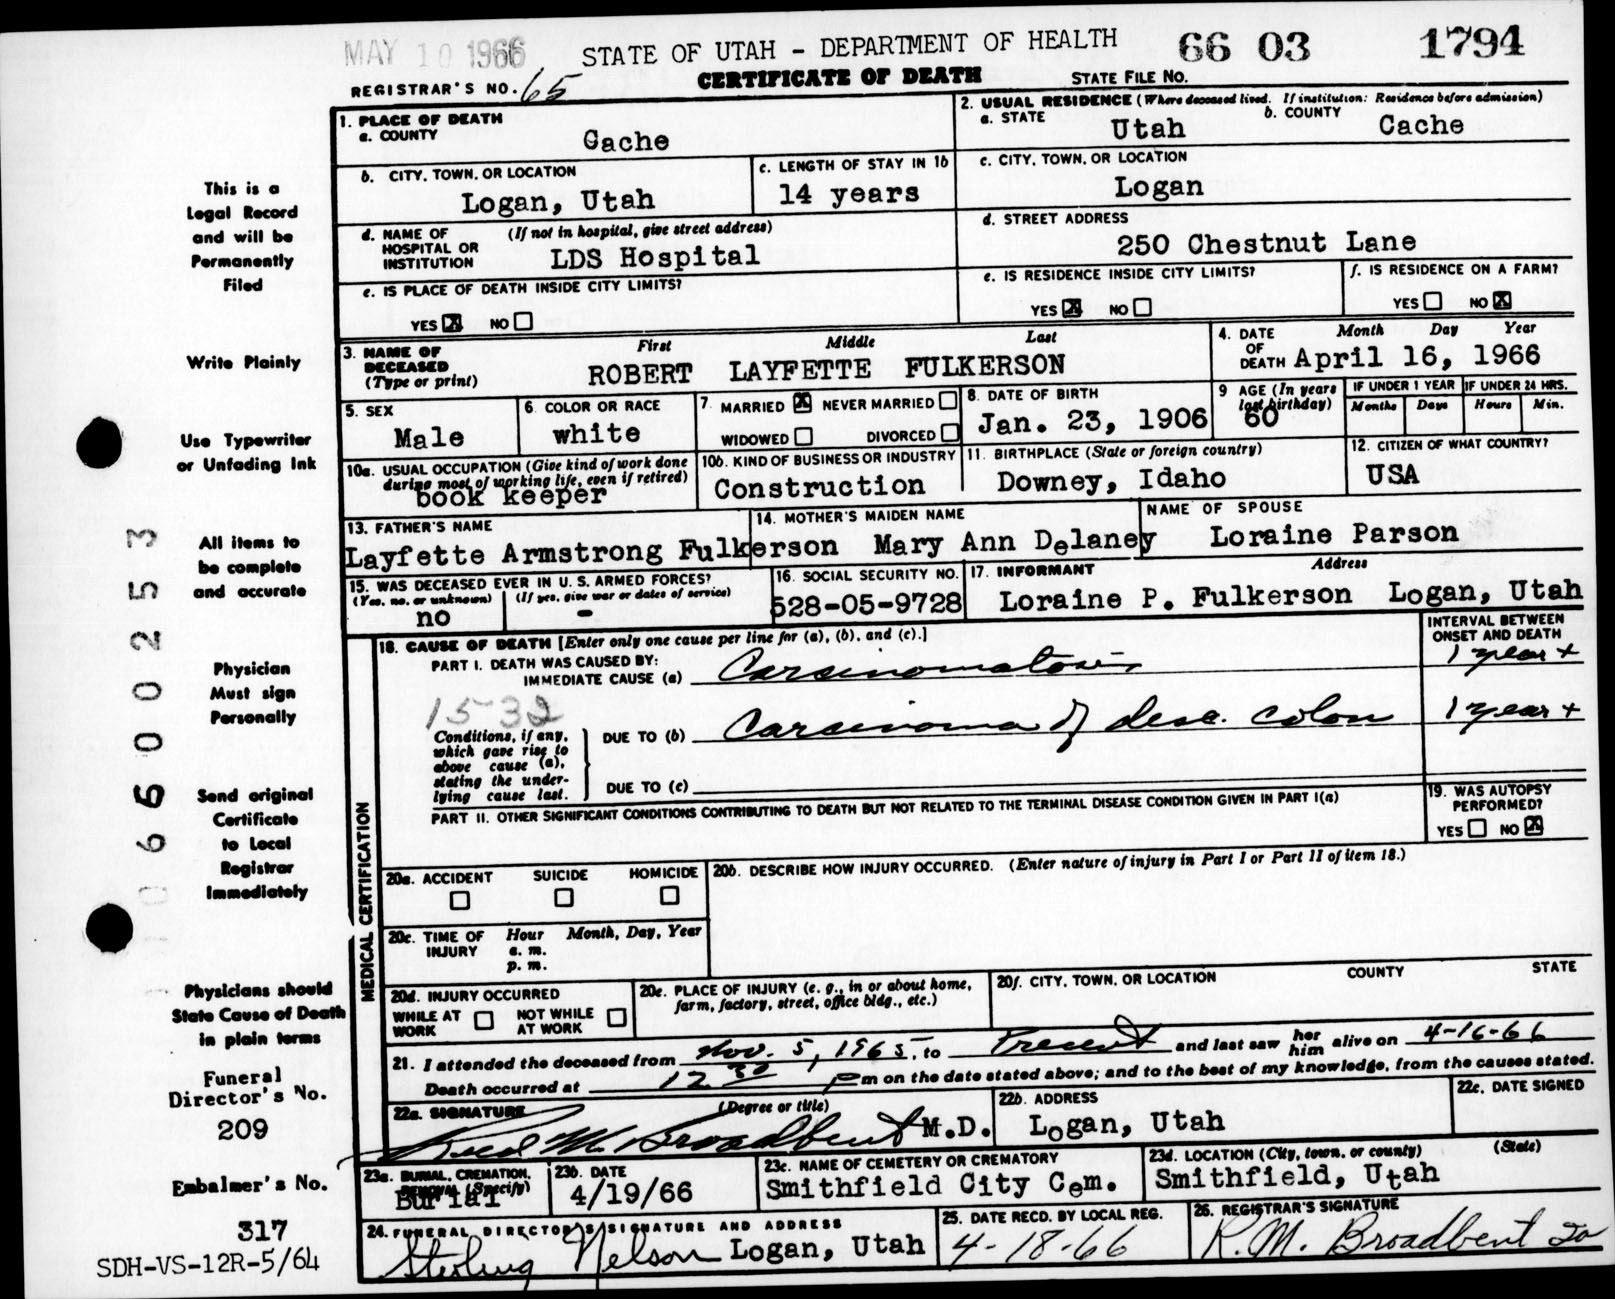 MAY 10 1966 STATE OF UTAH - DEPARTMENT OF HEALTH 66 03 1794
REGISTRAR'S NO. 65 CERTIFICATE OF DEATH STATE FILE NO.
1. PLACE OF DEATH
a. COUNTY Cache
2. USUAL RESIDENCE (Where deceased lived. If institution: Residence before admission)
a. STATE Utah b. COUNTY Cache
b. CITY, TOWN, OR LOCATION Logan, Utah
c. LENGTH OF STAY IN 1b 14 years
c. CITY, TOWN, OR LOCATION Logan
d. NAME OF HOSPITAL OR INSTITUTION (If not in hospital, give street address) LDS Hospital
d. STREET ADDRESS 250 Chestnut Lane
e. IS PLACE OF DEATH INSIDE CITY LIMITS?
YES X NO
e. IS RESIDENCE INSIDE CITY LIMITS?
YES X NO
f. IS RESIDENCE ON A FARM?
YES NO X
3. NAME OF DECEASED (Type or print)
First Middle Last
ROBERT LAYFETTE FULKERSON
4. DATE OF DEATH Month Day Year
April 16, 1966
5. SEX Male
6. COLOR OR RACE white
7. MARRIED X NEVER MARRIED
WIDOWED DIVORCED
8. DATE OF BIRTH Jan. 23, 1906
9 AGE (In years last birthday) 60
IF UNDER 1 YEAR Months Days
IF UNDER 24 HRS. Hours Min.
10a. USUAL OCCUPATION (Give kind of work done during most of working life, even if retired)
book keeper
10b. KIND OF BUSINESS OR INDUSTRY Construction
11. BIRTHPLACE (State or foreign country) Downey, Idaho
12. CITIZEN OF WHAT COUNTRY? USA
13. FATHER'S NAME Layfette Armstrong Fulkerson
14. MOTHER'S MAIDEN NAME Mary Ann Delaney
NAME OF SPOUSE Loraine Parson
15. WAS DECEASED EVER IN U. S. ARMED FORCES?
(Yes, no, or unknown) (If yes, give war or dates of service)
no -
16. SOCIAL SECURITY NO. 528-05-9728
17. INFORMANT Address
Loraine P. Fulkerson Logan, Utah
MEDICAL CERTIFICATION
18. CAUSE OF DEATH [Enter only one cause per line for (a), (b), and (c).]
INTERVAL BETWEEN ONSET AND DEATH
PART I. DEATH WAS CAUSED BY:
IMMEDIATE CAUSE (a) Carsinomatosis 1 year +
1532
Conditions, if any, which gave rise to above cause (a), stating the underlying cause last.
DUE TO (b) Carsinoma of desc. colon 1 year +
DUE TO (c)
PART II. OTHER SIGNIFICANT CONDITIONS CONTRIBUTING TO DEATH BUT NOT RELATED TO THE TERMINAL DISEASE CONDITION GIVEN IN PART I(a)
19. WAS AUTOPSY PERFORMED?
YES NO X
20a. ACCIDENT SUICIDE HOMICIDE
20b. DESCRIBE HOW INJURY OCCURRED. (Enter nature of injury in Part I or Part II of item 18.)
20c. TIME OF INJURY Hour Month, Day, Year
a. m.
p. m.
20d. INJURY OCCURRED
WHILE AT WORK NOT WHILE AT WORK
20e. PLACE OF INJURY (e. g., in or about home, farm, factory, street, office bldg., etc.)
20f. CITY, TOWN, OR LOCATION COUNTY STATE
21. I attended the deceased from Nov. 5, 1965, to Present and last saw her him alive on 4-16-66
Death occurred at 12 30 pm on the date stated above; and to the best of my knowledge, from the causes stated.
22a. SIGNATURE (Degree or title)
Reed M. Broadbent M.D.
22b. ADDRESS Logan, Utah
22c. DATE SIGNED
23a. BURIAL, CREMATION, REMOVAL (Specify) Burial
23b. DATE 4/19/66
23c. NAME OF CEMETERY OR CREMATORY Smithfield City Cem.
23d. LOCATION (City, town, or county) (State)
Smithfield, Utah
24. FUNERAL DIRECTOR'S SIGNATURE AND ADDRESS
Sterling Nelson Logan, Utah
25. DATE RECD. BY LOCAL REG. 4-18-66
26. REGISTRAR'S SIGNATURE
R.M. Broadbent
This is a
Legal Record
and will be
Permanently
Filed
Write Plainly
Use Typewriter
or Unfading Ink
All items to
be complete
and accurate
Physician
Must sign
Personally
Send original
Certificate
to Local
Registrar
Immediately
Physicians should
State Cause of Death
in plain terms
Funeral
Director's No.
209
Embalmer's No.
317
SDH-VS-12R-5/64
06600253